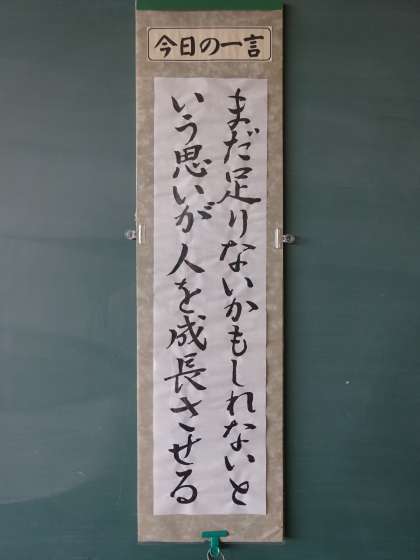 今日の一言
まだ足りないかもしれないと
いう思いが人を成長させる